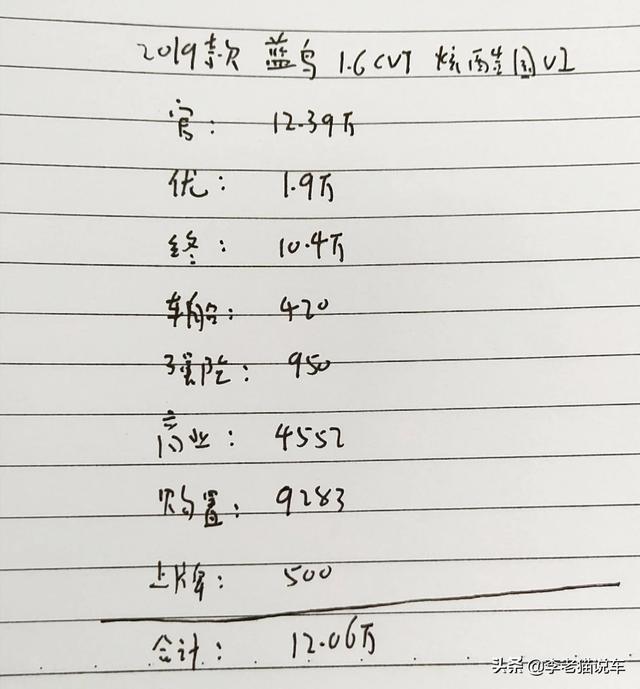 2019款 蓝鸟 1.6 CVT 炫酷型国VI
官: 12.39万
优: 1.9万
终: 10.4万
车船: 420
强险: 950
商业: 4552
购置: 9283
上牌: 500
合计: 12.06万
头条 @李老猫说车